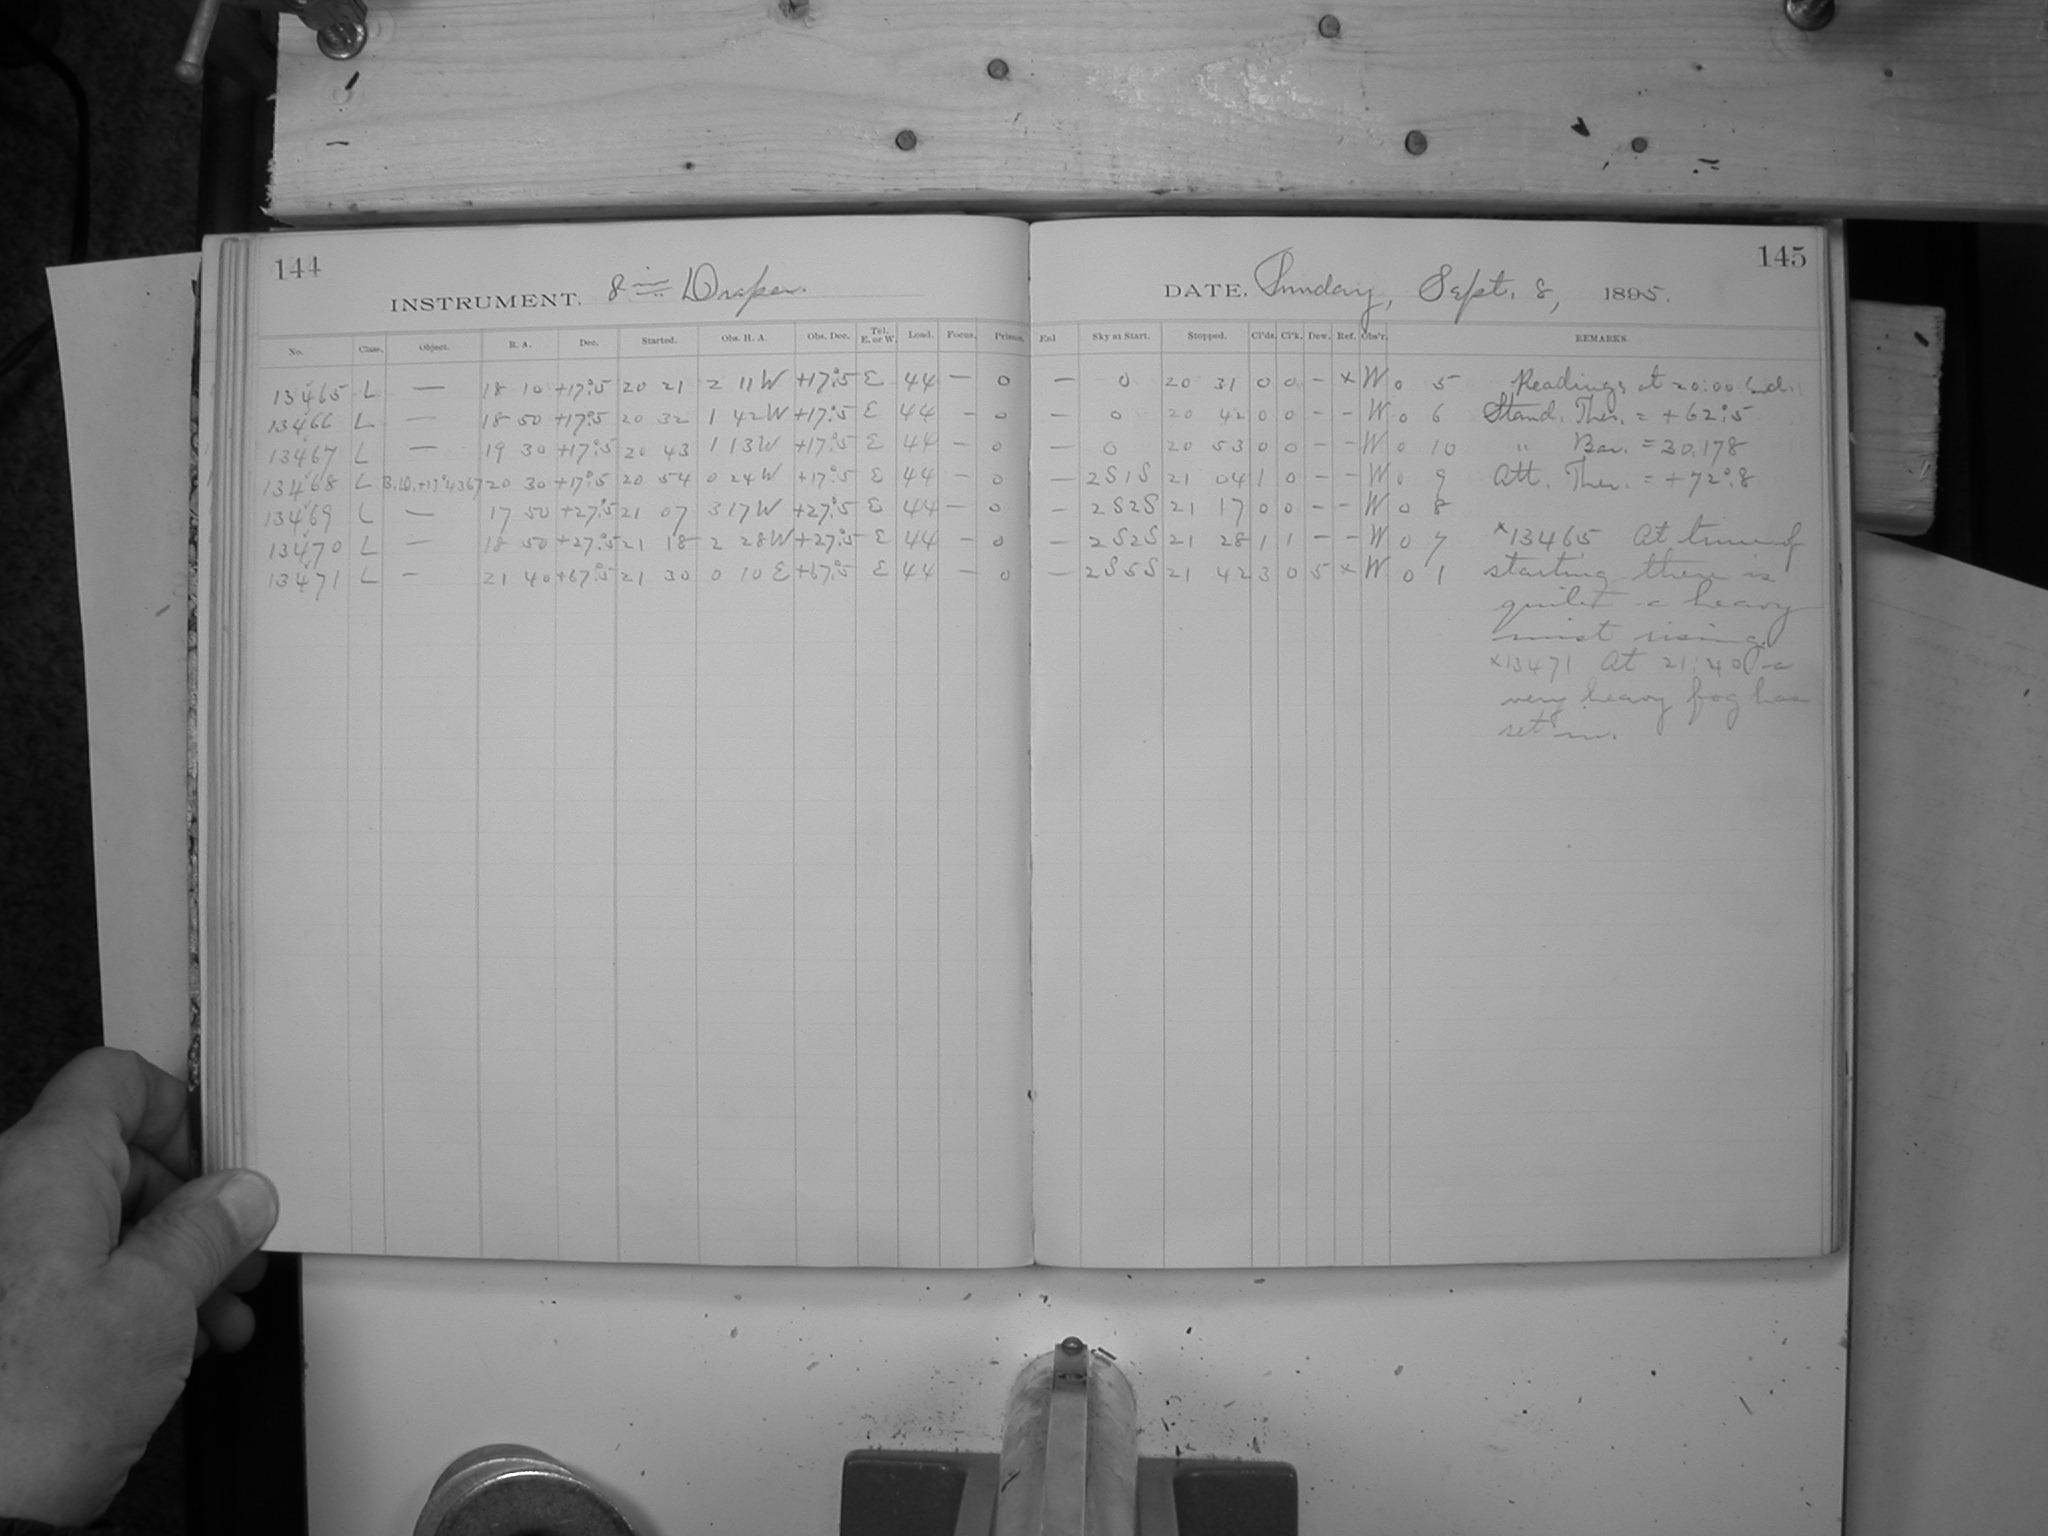 144
INSTRUMENT. 8 in Draper.
No. Class. Object. R. A. Dec. Started. Obs. H. A. Obs. Dec. Tel. E. or W. Load. Focus. Prisms.
13465 L — 18 10 +17°.5 20 21 2 11 W +17°.5 E 44 — 0
13466 L — 18 50 +17°.5 20 32 1 42 W +17°.5 E 44 — 0
13467 L — 19 30 +17°.5 20 43 1 13 W +17°.5 E 44 — 0
13468 L B.D.+17°4367 20 30 +17°.5 20 54 0 24 W +17°.5 E 44 — 0
13469 L — 17 50 +27°.5 21 07 3 17 W +27°.5 E 44 — 0
13470 L — 18 50 +27°.5 21 18 2 28 W +27°.5 E 44 — 0
13471 L — 21 40 +67°.5 21 30 0 10 E +67°.5 E 44 — 0
145
DATE. Sunday, Sept. 8, 1895.
Enl Sky at Start. Stopped. Cl'ds. Cl'k. Dew. Ref. Obs'r. REMARKS.
— 0 20 31 0 0 – × W 0 5 Readings at 20:00
— 0 20 42 0 0 – – W 0 6 Stand. Ther. = +62°.5
— 0 20 53 0 0 – – W 0 10 " Bar. = 30.178
— 2S1S 21 04 1 0 – – W 0 9 Att. Ther. = +72°.8
— 2S2S 21 17 0 0 – – W 0 8
— 2S2S 21 28 1 1 – – W 0 7 ×13465 At time of
— 2S5S 21 42 3 0 5 × W 0 1 starting there is
quite a heavy
mist rising.
×13471 At 21:40 a
very heavy fog has
set in.